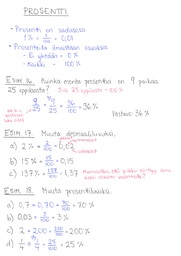 PROSENTTI
• Prosentti on sadasosa
1% = 1/100 = 0,01
• Prosentteilla ilmaistaan osuuksia
- Ei yhtään = 0%
- Kaikki = 100%
ESIM. 16. Kuinka monta prosenttia on 9 poikaa
25 oppilaasta?
9/25 = 36/100 = 36%
Vastaus: 36%
ESIM. 17. Muuta desimaaliluvuksi.
a) 2% = 2/100 = 0,02
b) 15% = 15/100 = 0,15
c) 137% = 137/100 = 1,37
ESIM. 18. Muuta prosenttiluvuksi.
a) 0,7 = 0,70 = 70/100 = 70%
b) 0,03 = 3/100 = 3%
c) 2 = 200/100 = 200%
d) 1/4 = 25/100 = 25%